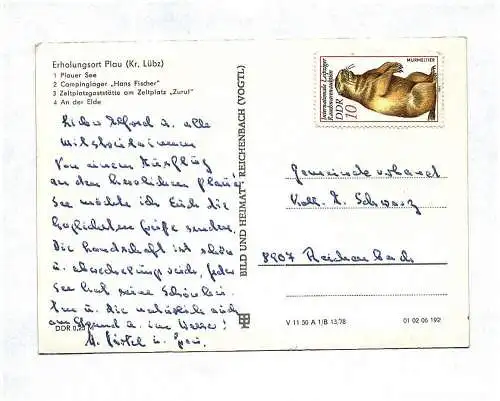 Erholungsort Plau (Kr. Lübz)
1 Plauer See
2 Campinglager „Hans Fischer"
3 Zeltplatzgaststätte am Zeltplatz „Zuruf"
4 An der Elde
Lieber Alfred u. alle
Mitstreiterinnen
Von einem Ausflug
an den herrlichen Plauer
See möchte ich Euch die
herzlichsten Grüße senden.
Die Landschaft ist schön
u. abwechslungsreich, jeder
See hat seine Schönheit
u. die natürlich auch
am Strand u. im Wasser!
u.
DDR 0,20 M
BILD UND HEIMAT REICHENBACH (VOGTL)
Internationale Leipziger
Rauchwarenauktion
DDR
10
MURMELTIER
Gemeindeverband
Koll. E. Schwarz
8907 Reichenbach
V 11 50 A 1/B 13/78
01 02 06 192